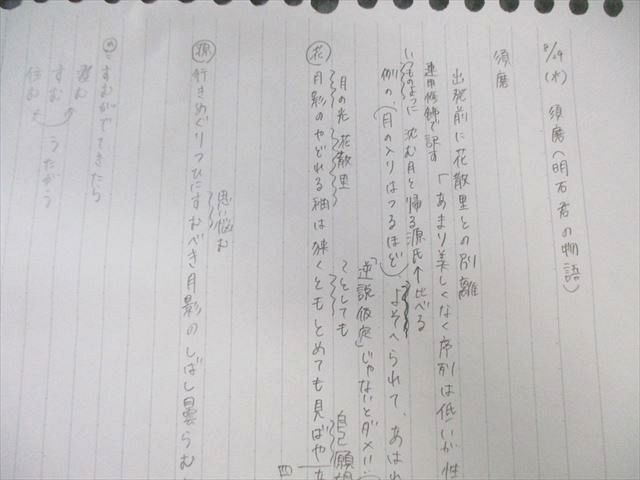 8/29(水) 須磨(明石君の物語)
須磨
出発前に花散里との別離
「あまり美しくなく序列は低いが性
連用修飾で訳す
いつものように 沈む月と帰る源氏を比べる
例の、(月の入りはつるほど) よそへられて、あはれ
「逆説仮定」じゃないとダメ!!
月の光 花散里 ～としても 自己願望
花 月影のやどれる袖は狭くともとめても見ばや
四
思い悩む
源 行きめぐりつひにすむべき月影のしばし曇らむ
◎「すむ」がでてきたら
澄む
すむ うたがう
住む